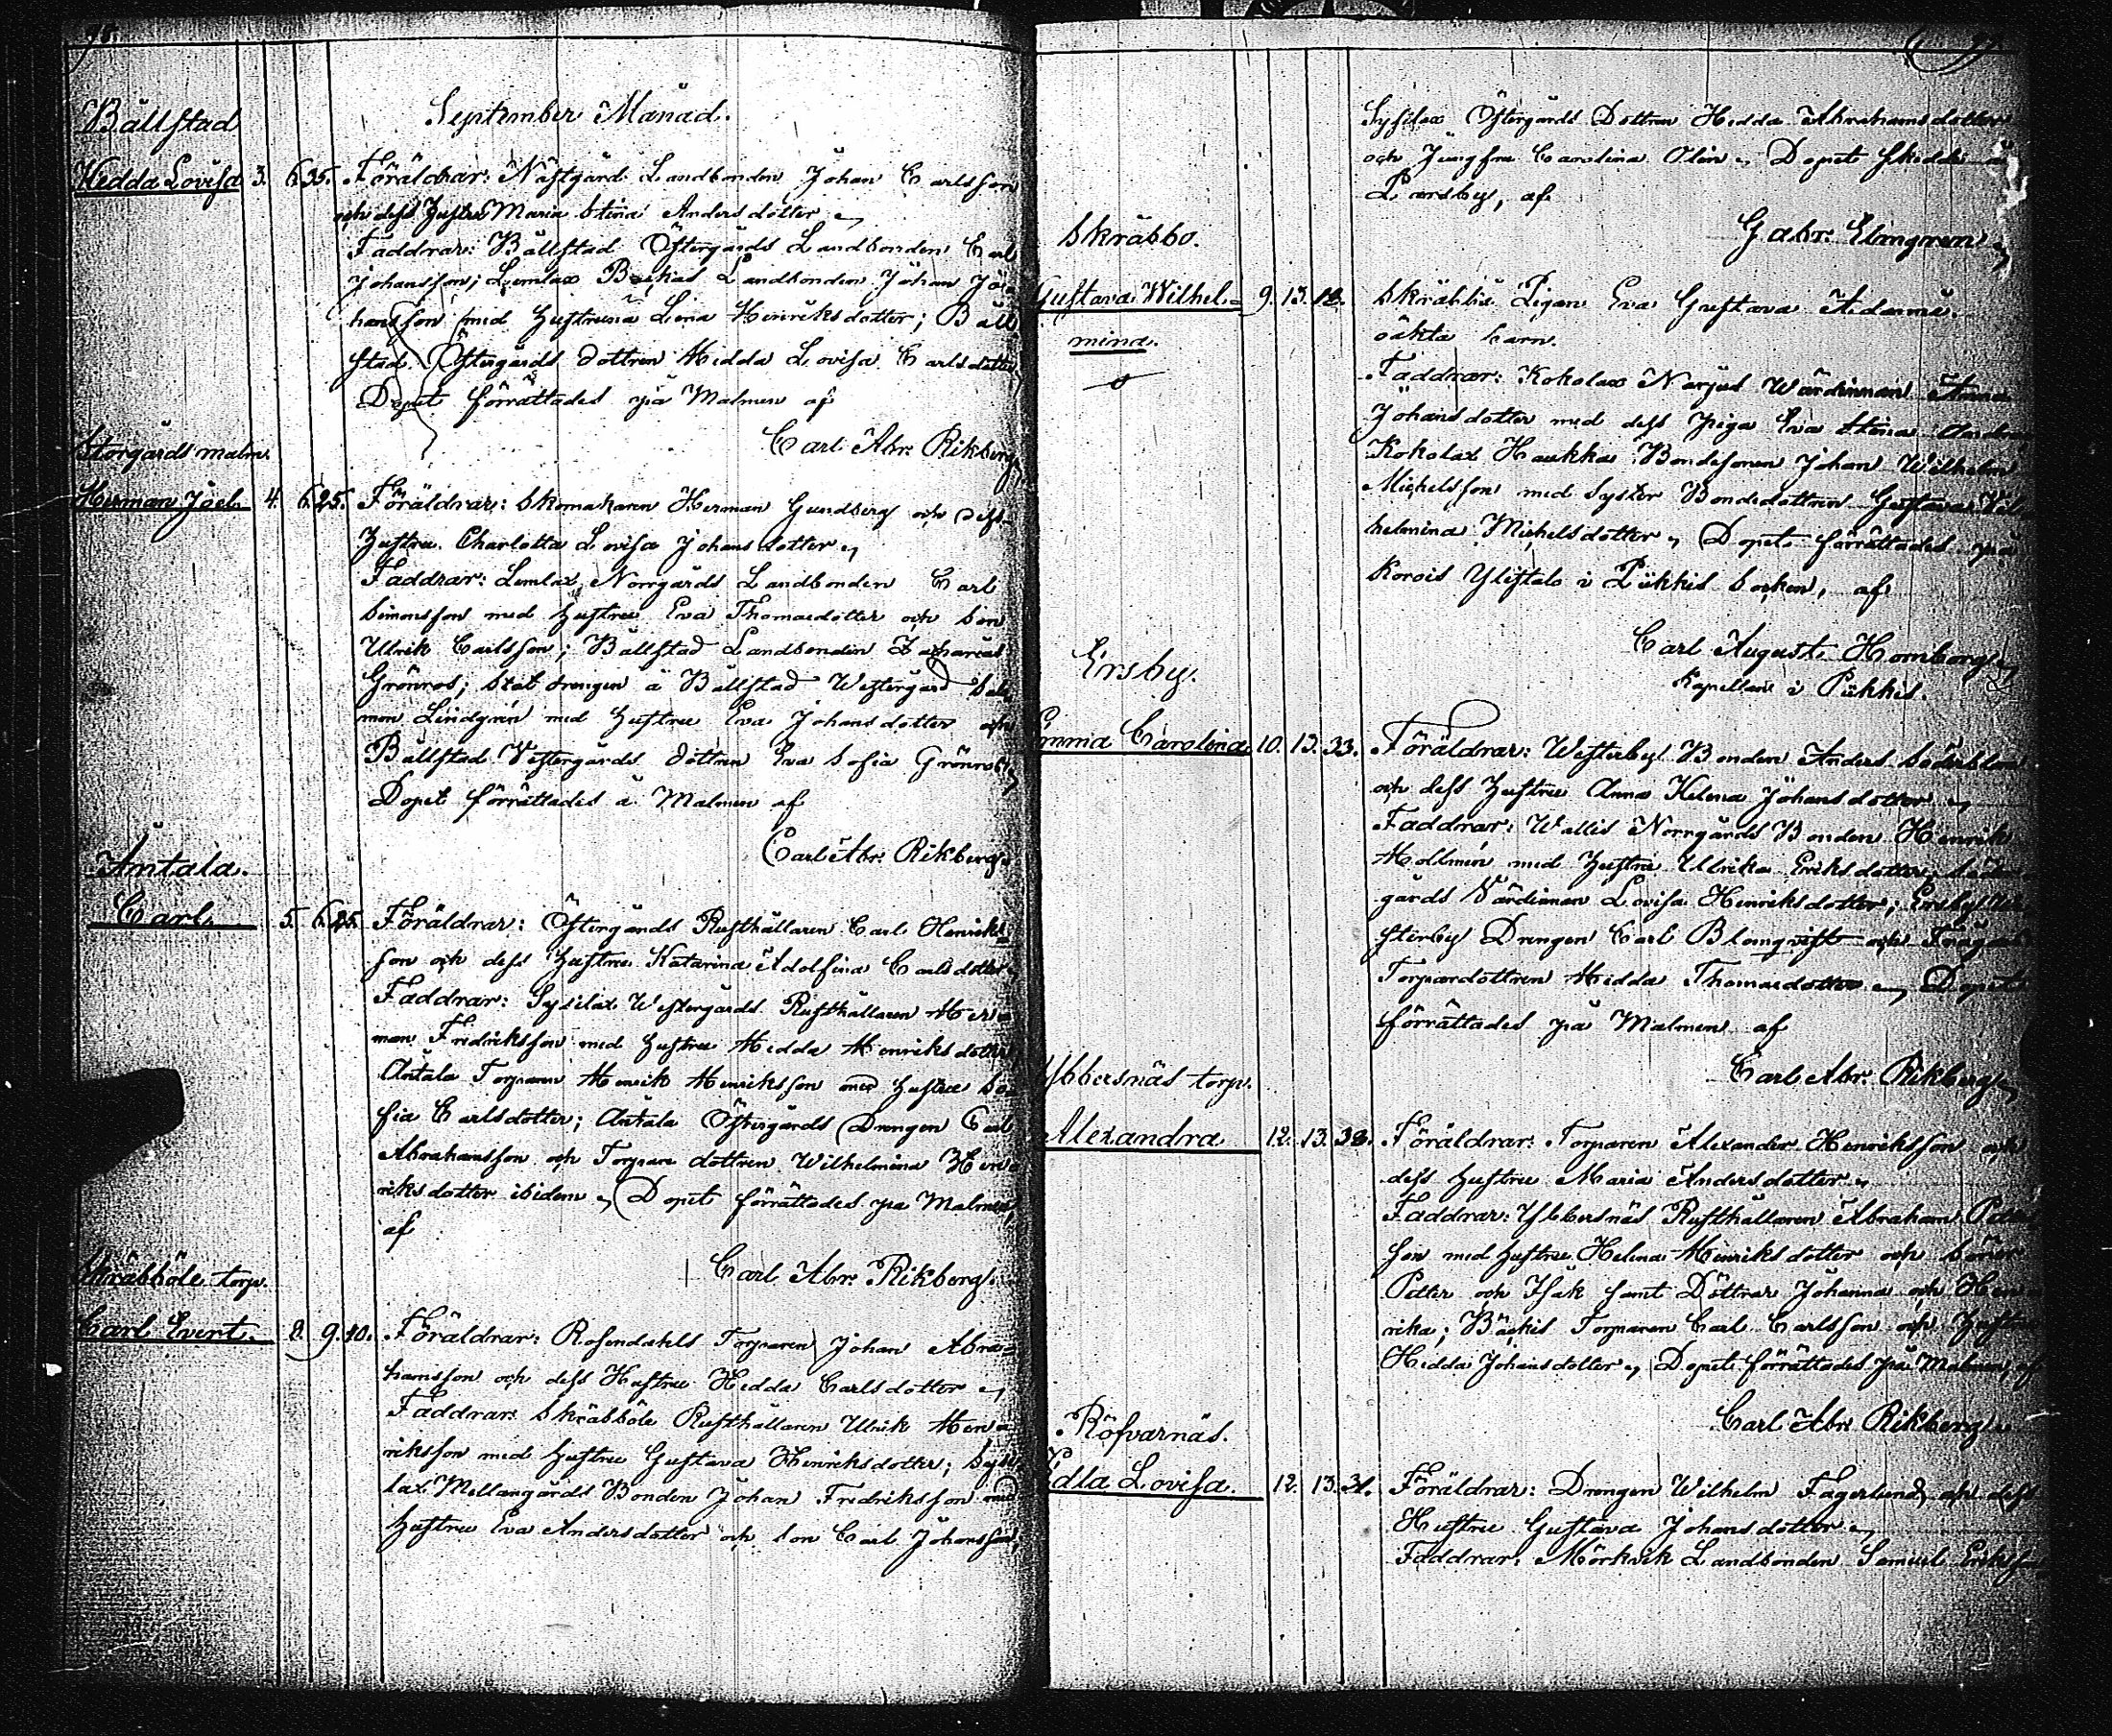 September Månad.
Bållstad
Hedda Lovisa 3. 6. 35. Föräldrar: Nästgård Landbonden Johan Carlsson
och dess Hustru Maria Stina Anders dotter
Faddrar: Bållstad Östergårds Landbonden Carl
Johansson; Lemlax Landbonden Johan Jo-
hansson med Hustruna Lena Henriksdotter; Båll
stad Östergårds dottren Hedda Lovisa Carlsdotter,
Dopet förrättades på Malmen af
Carl Abr. Rikberg
Storgårds malm.
Herman Joel. 4. 6. 25. Föräldrar: Skomakaren Herman Gundberg och dess
Hustru Charlotta Lovisa Johans dotter
Faddrar: Lemlax Norrgårds Landbonden Carl
Simonsson med Hustru Eva Thomasdotter och Son
Ulrik Carlsson; Bållstad Landbonden Zacharias
Grönros; Stat drengen å Bållstad Westergård Salo
mon Lindgrén med Hustru Eva Johans dotter och
Bållstad Westergårds dottren Eva Sofia Grönros
Dopet förrättades å Malmen af
Carl Abr. Rikberg.
Antala.
Carl. 5. 6. 25. Föräldrar: Östergårds Rusthållaren Carl Henriks
son och dess Hustru Katarina Adolfina Carlsdotter
Faddrar: Sysilax Westergårds Rusthållaren Her
man Fredriksson med Hustru Hedda Henriksdotter
Antala Torparen Henrik Henriksson med Hustru So
fia Carlsdotter; Antala Östergårds Drengen Carl
Abrahamsson och Torpare dottren Wilhelmina Hen
riksdotter ibidem, Dopet förrättades på Malmen,
af
Carl Abr. Rikberg.
Skräbböle torp.
Carl Evert. 8. 9. 10. Föräldrar: Rosendahls Torparen Johan Abra-
hamsson och dess Hustru Hedda Carlsdotter
Faddrar: Skräbböle Rusthållaren Ulrik Hen-
riksson med Hustru Gustava Henriksdotter; Sysi
lax Mellangårds Bonden Johan Fredriksson med
Hustru Eva Andersdotter och Son Carl Johansson,
Sysilax Östergårds Dottren Hedda Abrahamsdotter
och Jungfru Carolina Olin, Dopet skedde å
Parsby, af
Gabr. Elmgren
Skräbbö.
Gustava Wilhel- 9. 13. 18. Skräbbö Pigan Eva Gustava Adams
mina. oäkta barn.
Faddrar: Kokolax Narjus Wärdinnan Anna
Johansdotter med dess piga Eva Stina
Kokolax Haukka Bondesonen Johan Wilhelm
Michelsson med Syster Bondedottren Gustava Wil
helmina Michelsdotter, Dopet förrättades på
Korois Ylistalo i Pikkis Socken, af
Carl August Hornborg
Kapellan i Pikkis.
Ersby.
Emma Carolina. 10. 13. 33. Föräldrar: Westerby Bonden Anders Söderblom
och dess Hustru Anna Helena Johansdotter
Faddrar: Wallis Norrgårds Bonden Henrik
Hollmén med Hustru Ulrika Eriksdotter, Söder
gårds Värdinnan Lovisa Henriksdotter; Ersby We
sterby Drengen Carl Blomqvist och
Torparedottren Hedda Thomasdotter, Dopet
förrättades på Malmen af
Carl Abr. Rikberg
Ybbersnäs torp.
Alexandra 12. 13. 38. Föräldrar: Torparen Alexander Henriksson och
dess Hustru Maria Andersdotter
Faddrar: Ybbersnäs Rusthållaren Abraham Peters
son med Hustru Helena Henriksdotter och Söner
Petter och Isak samt Döttrar Johanna och Hen
rika; Bäckis Torparen Carl Carlsson och Hustru
Hedda Johansdotter, Dopet förrättades på Malmen, af
Carl Abr. Rikberg
Röfvarnäs.
Edla Lovisa. 12. 13. 31. Föräldrar: Drengen Wilhelm Fagerlund och dess
Hustru Gustava Johansdotter
Faddrar: Mörkvik Landbonden Samuel Eriksson